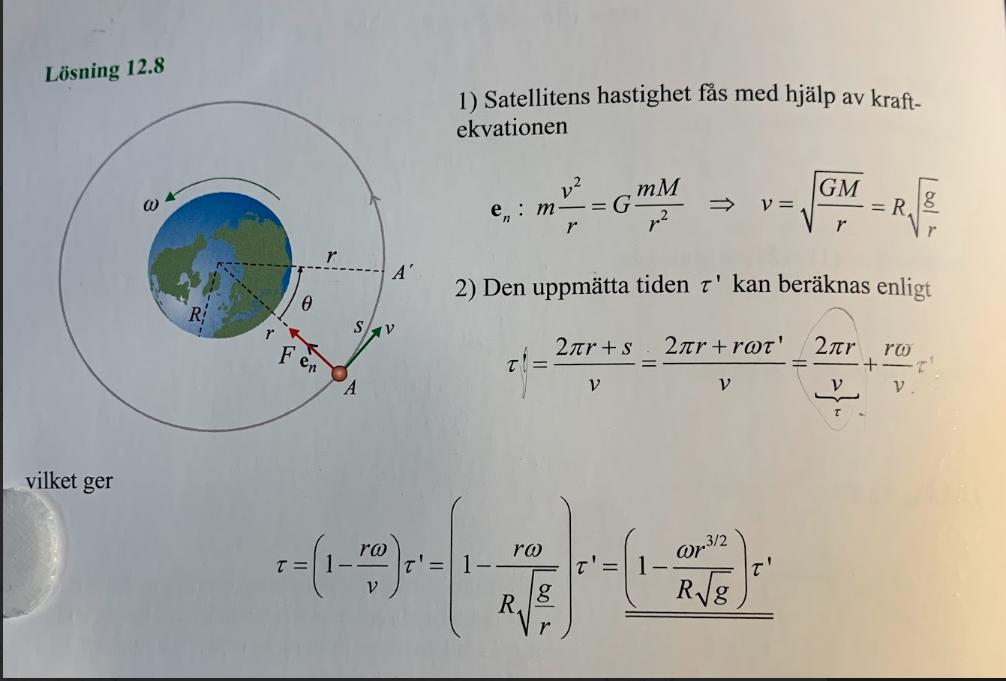 Lösning 12.8
1) Satellitens hastighet fås med hjälp av kraft-
ekvationen
e_n : m v²/r = G mM/r² ⇒ v = √(GM/r) = R√(g/r)
2) Den uppmätta tiden τ' kan beräknas enligt
τ' = (2πr + s)/v = (2πr + rωτ')/v = 2πr/v + rω/v τ'
τ
ω
r
A'
θ
R
r
s
v
F
e_n
A
vilket ger
τ = (1 − rω/v) τ' = (1 − rω/(R√(g/r))) τ' = (1 − ωr^{3/2}/(R√g)) τ'